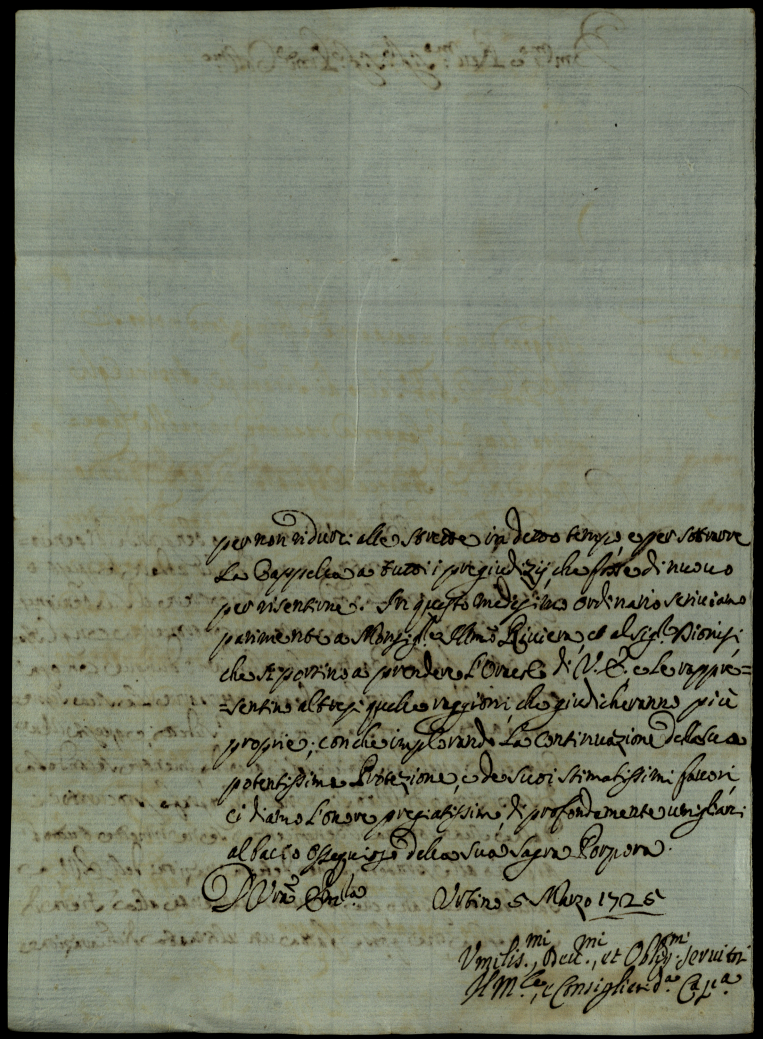 per non ridurci alle strette in detto tempo, e per sottrarre
La Cappella a tutti i pregiudizij che fosse di nuovo
per risentirne. In questo medesimo ordinario scriviamo
parimente a Monsig.re Ill.mo Riviera, et al sig.r Dionisi,
che si portino a prendere l'Oracolo di V. E. e Le rappre=
=sentino altresi quelle raggioni, che giudicheranno più
proprie; con che implorando La Continuazione della sua
potentissima Protezione, e de suoi stimatissimi favori
ci diamo l'onore pregiatissimo di profondamente umigliarci
al bacio Ossequioso della sua Sagra Porpora.
D. Vra Em.za Urbino 5 Marzo 1725
Umilis.mi, Dev.mi, et Oblig.mi Servitori
Il M.le, e Consiglieri d.a C.a p.a